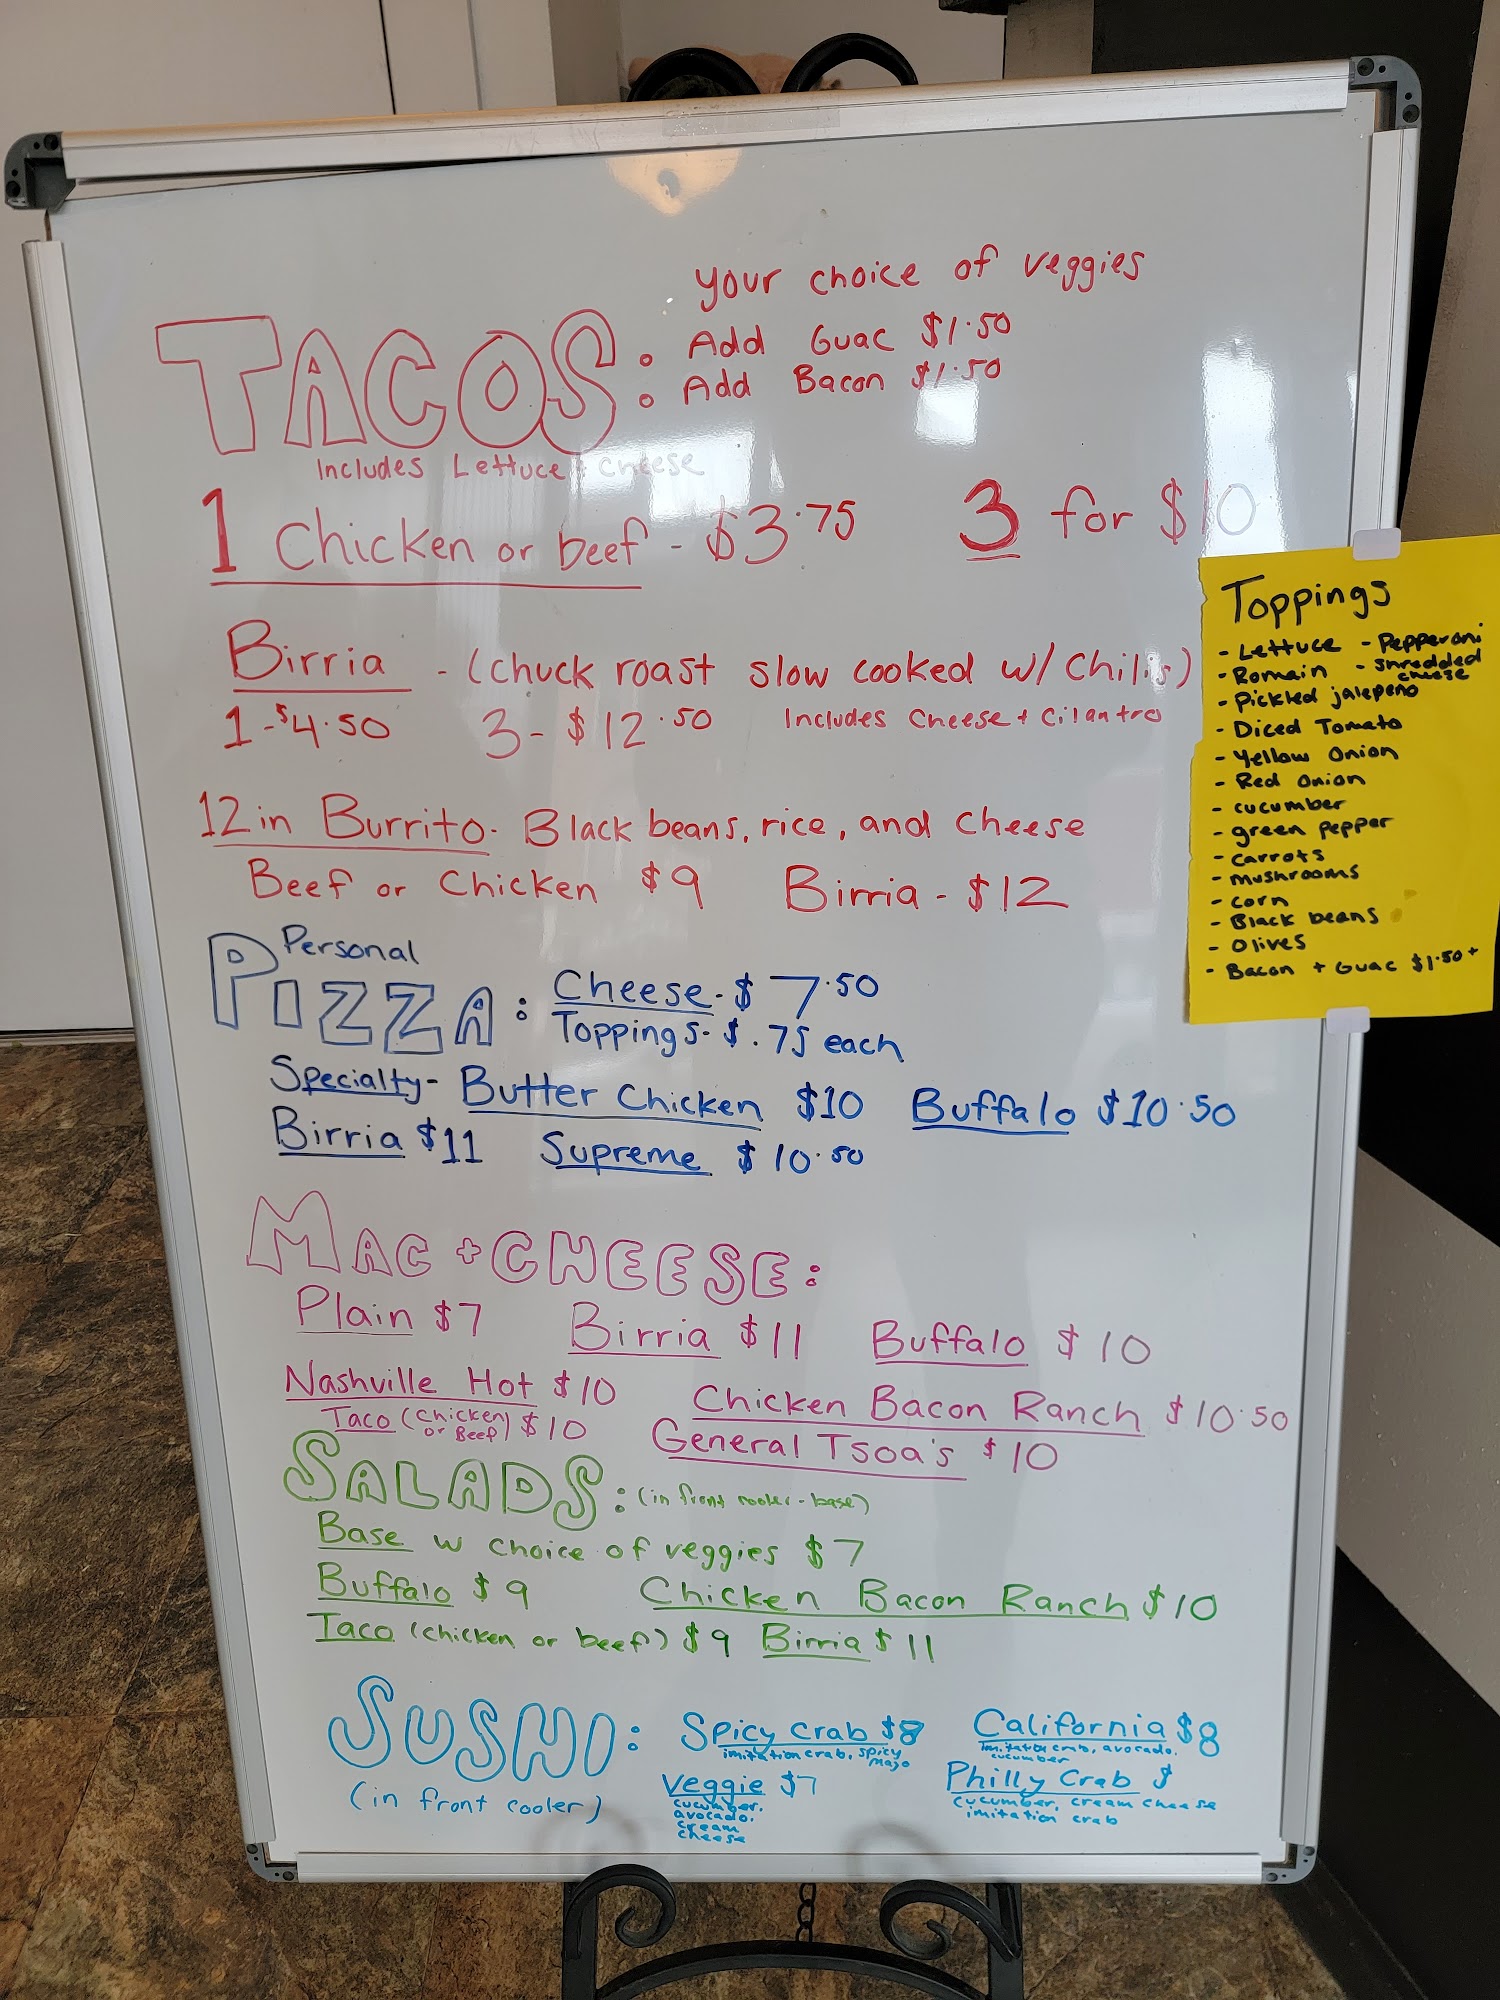 your choice of veggies
TACOS: Add Guac $1.50
Add Bacon $1.50
Includes Lettuce + cheese
1 Chicken or beef - $3.75 3 for $10
Birria - (Chuck roast slow cooked w/ Chilis)
1-$4.50 3-$12.50 Includes Cheese + Cilantro
12in Burrito- Black beans, rice, and cheese
Beef or Chicken $9 Birria - $12
Personal
PIZZA: Cheese-$7.50
Toppings-$.75 each
Specialty- Butter Chicken $10 Buffalo $10.50
Birria $11 Supreme $10.50
MAC + CHEESE:
Plain $7 Birria $11 Buffalo $10
Nashville Hot $10 Chicken Bacon Ranch $10.50
Taco (Chicken or Beef) $10 General Tsoa's $10
SALADS: (in front cooler - base)
Base w choice of veggies $7
Buffalo $9 Chicken Bacon Ranch $10
Taco (chicken or beef) $9 Birria $11
SUSHI: Spicy Crab $8 California $8
imitation crab, spicy mayo
imitation crab, avocado, cucumber
(in front cooler) Veggie $7 Philly Crab $
cucumber, avocado, cream cheese
cucumber, cream cheese
imitation crab
Toppings
- Lettuce - Pepperoni
- Romain - shredded cheese
- Pickled jalepeno
- Diced Tomato
- Yellow Onion
- Red Onion
- cucumber
- green pepper
- carrots
- mushrooms
- corn
- Black beans
- Olives
- Bacon + Guac $1.50+